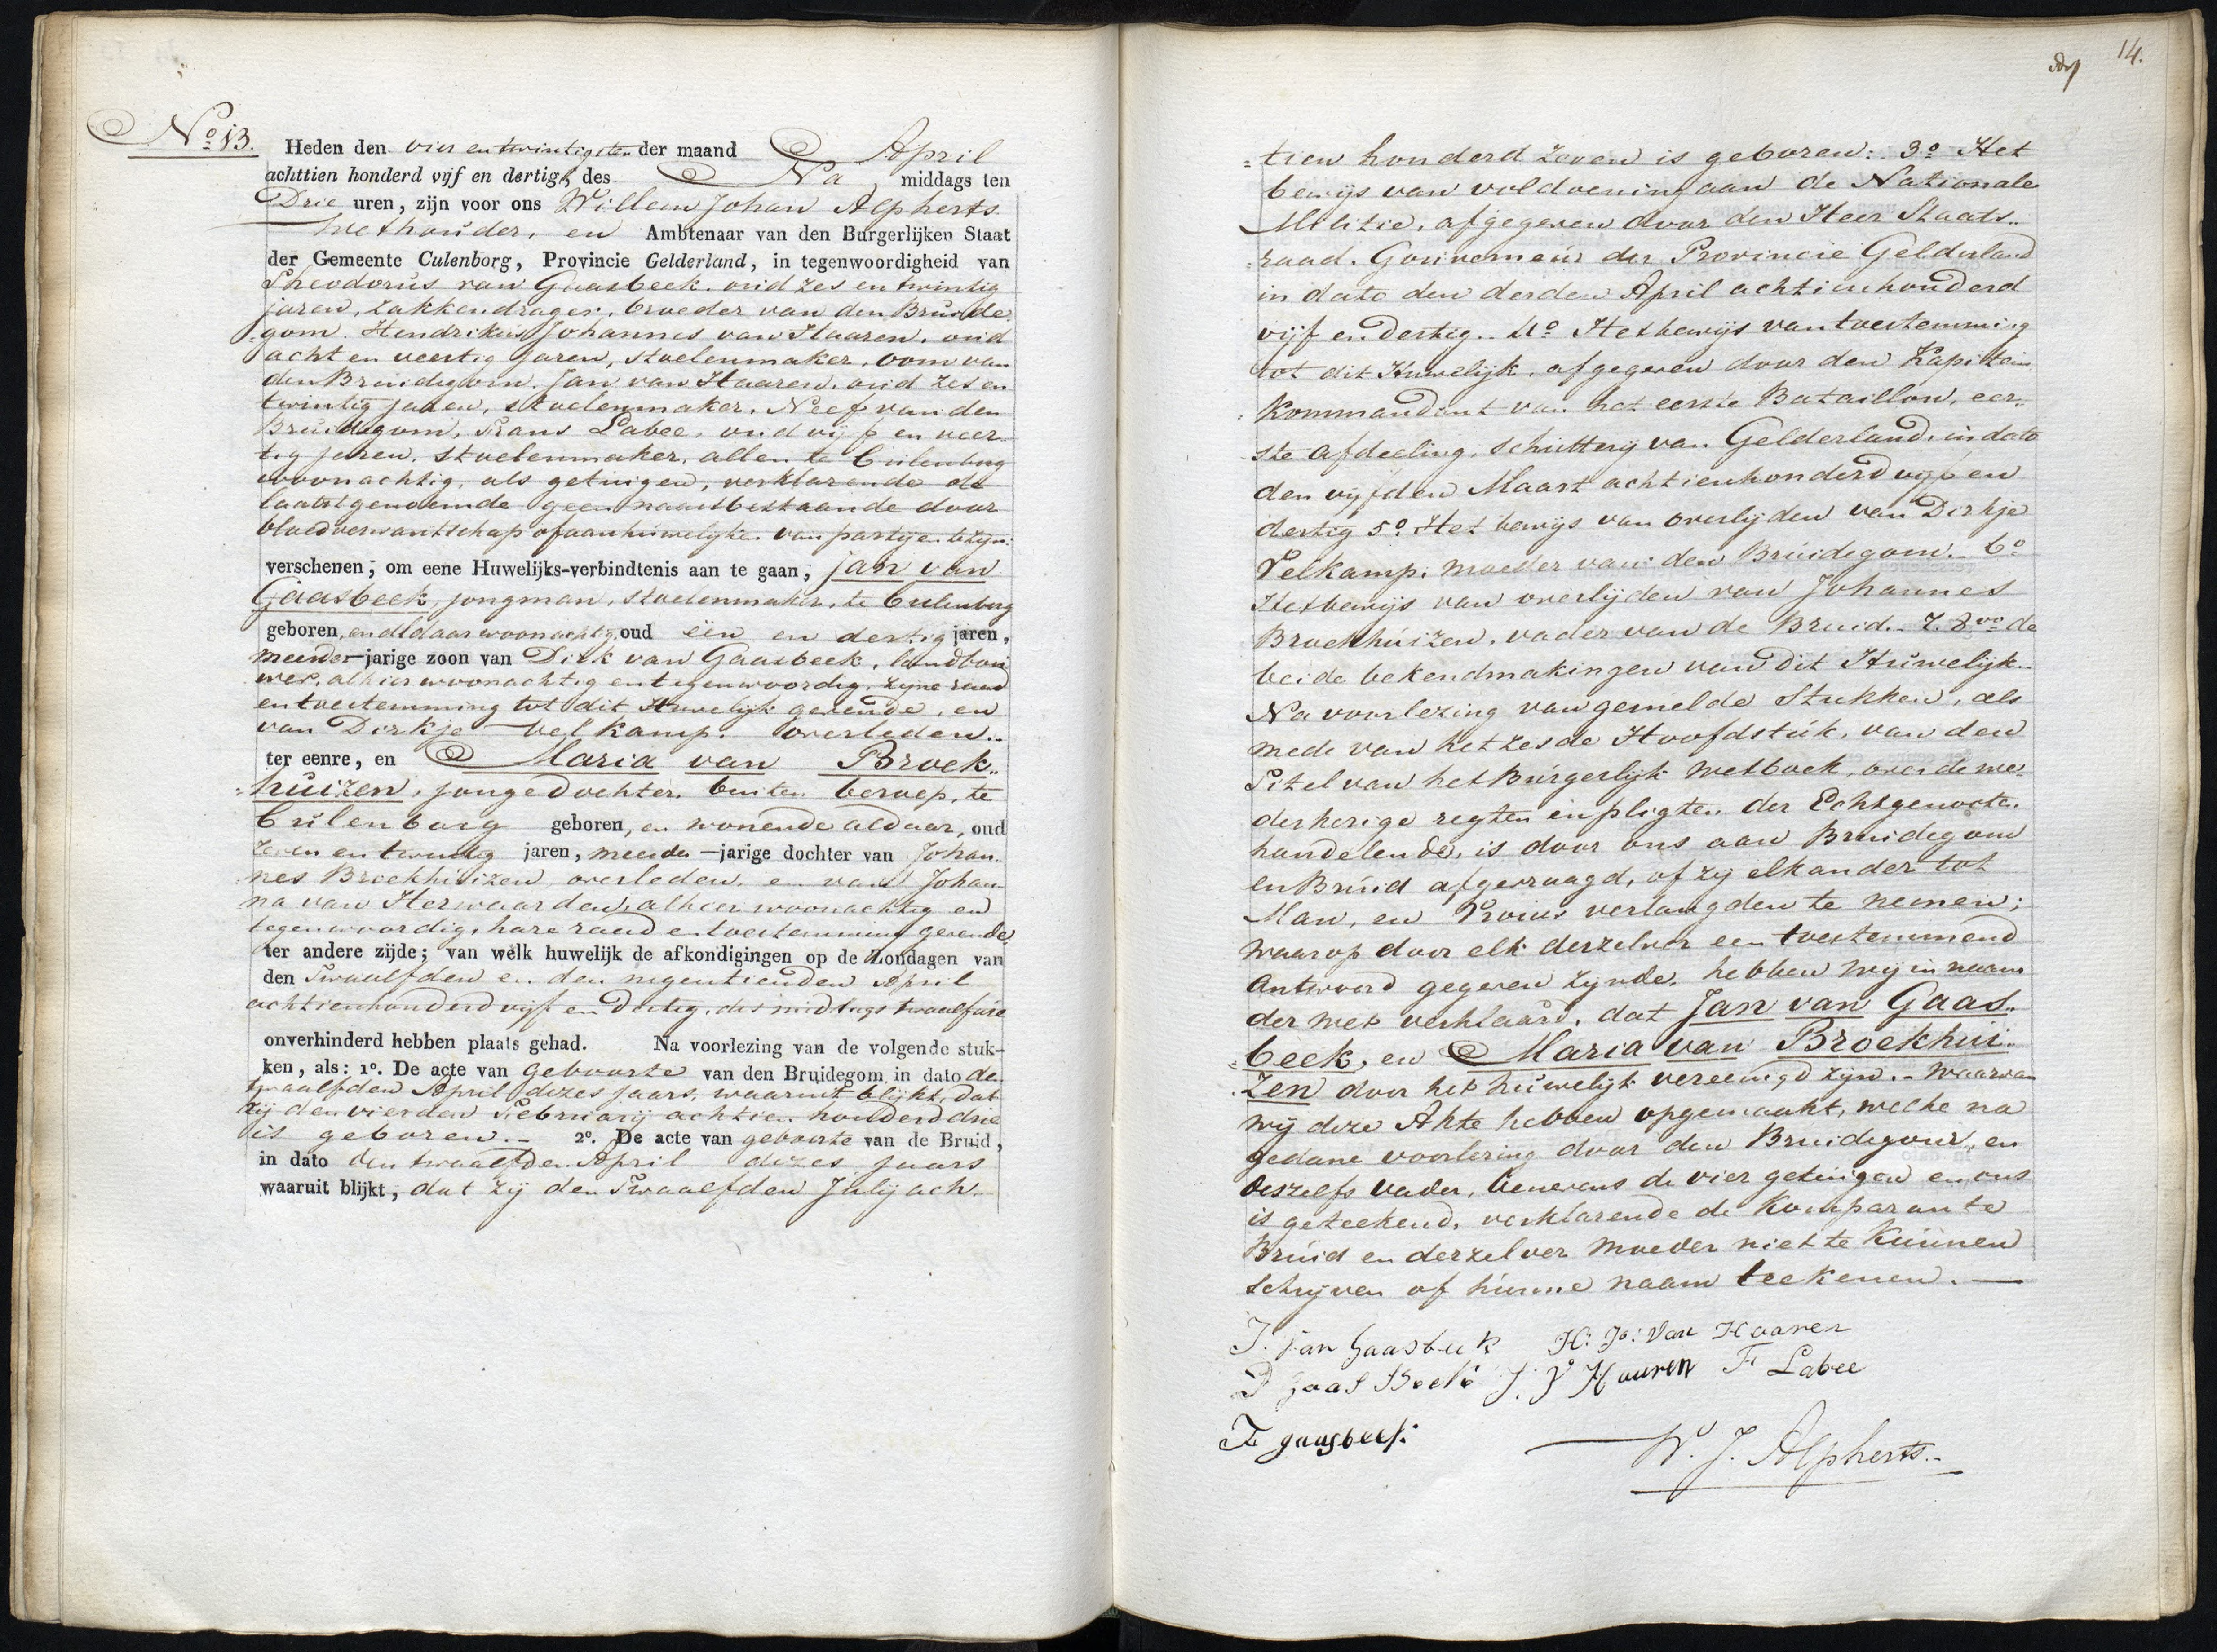 No 13.
Heden den vier en twintigsten der maand April
achttien honderd vijf en dertig, des Na middags ten
Drie uren, zijn voor ons Willem Johan Alpherts
Wethouder, en Ambtenaar van den Burgerlijken Staat
der Gemeente Culenborg, Provincie Gelderland, in tegenwoordigheid van
Theodorus van Gaasbeek. oud zes en twintig
jaren, zakkendrager, broeder van den Bruide-
gom. Hendrikus Johannes van Haaren, oud
acht en veertig jaren, stoelenmaker, oom van
den Bruidegom. Jan van Haaren, oud zes en
twintig jaren, stoelenmaker, Neef van den
Bruidegom, Frans Labee, oud vijf en veer-
tig jaren, stoelenmaker, allen te Culenborg
woonachtig, als getuigen, verklarende de
laatstgenoemde geen naastbestaande door
bloedverwantschap of aanhuwelijke. van partijen te zyn.
verschenen, om eene Huwelijks-verbindtenis aan te gaan, Jan van
Gaasbeek, jongman, stoelenmaker, te Culenborg
geboren, en aldaar woonachtig, oud één en dertig jaren,
meerder-jarige zoon van Dirk van Gaasbeek, landbou
wer, alhier woonachtig en tegenwoordig, zyne raad
en toestemming tot dit Huwelijk gevende, en
van Dirkje Velkamp. overleden.-
ter eenre, en Maria van Broek-
=huizen, jongedochter, buiten beroep, te
Culenborg geboren, en wonende aldaar, oud
zeven en twintig jaren, meerder-jarige dochter van Johan-
nes Broekhuizen, overleden, en van Johan-
na van Herwaarden, alhier woonachtig en
tegenwoordig, hare raad en toestemming gevende
ter andere zijde; van welk huwelijk de afkondigingen op de Zondagen van
den Twaalfden en den negentienden April
achtienhonderd vijf en Dertig, des middags twaalf ure
onverhinderd hebben plaats gehad. Na voorlezing van de volgende stuk-
ken, als: 1o. De acte van geboorte van den Bruidegom in dato de
twaalfden April dezes jaars, waaruit blijkt, dat
hij den vierden Februarij achtien honderd drie
is geboren.- 2o. De acte van geboorte van de Bruid,
in dato den twaalfden April dezes jaars
waaruit blijkt, dat zij den Twaalfden Julij ach-
14.
=tien honderd zeven is geboren: 3o Het
bewijs van voldoening aan de Nationale
Militie, afgegeven door den Heer Staats-
raad. Gouverneur der Provincie Gelderland
in dato den derden April achtienhonderd
vijf en dertig.. 4o Het bewijs van toestemming
tot dit Huwelijk, afgegeven door den Kapitein
Kommandant van het eerste Bataillon, eer-
ste afdeeling, Schutterij van Gelderland, in dato
den vijfden Maart achtienhonderd vijf en
dertig 5o Het bewijs van overlijden van Dirkje
Velkamp, moeder van den Bruidegom.- 6o
Het bewijs van overlijden van Johannes
Broekhuizen, vader van de Bruid.- 7. 8vo de
beide bekendmakingen van dit Huwelijk.-
Na voorlezing van gemelde Stukken, als
mede van het zesde Hoofdstuk, van den
Titel van het Burgerlijk Wetboek, over de we-
derkerige regten en pligten der Echtgenoote,
handelende, is door ons aan Bruidegom
en Bruid afgevraagd, of zij elkander tot
Man, en Vrouw verlangden te nemen;
waarop door elk derzelver een toestemmend
Antwoord gegeven zynde, hebben wij in naam
der wet verklaard, dat Jan van Gaas-
=beek, en Maria van Broekhui-
zen door het huwelijk vereenigd zijn.- Waarvan
wij deze Akte hebben opgemaakt, welke na
gedane voorlezing door den Bruidegom, en
deszelfs vader, benevens de vier getuigen en ons
is geteekend, verklarende de Komparante
Bruid en derzelver moeder niet te kunnen
schrijven of hunne naam teekenen.—
J. van Gaasbeek H: Js: Van Haaren
D Gaas Beek J. V Haaren F Labee
T gaasbeek
W. J. Alpherts.-